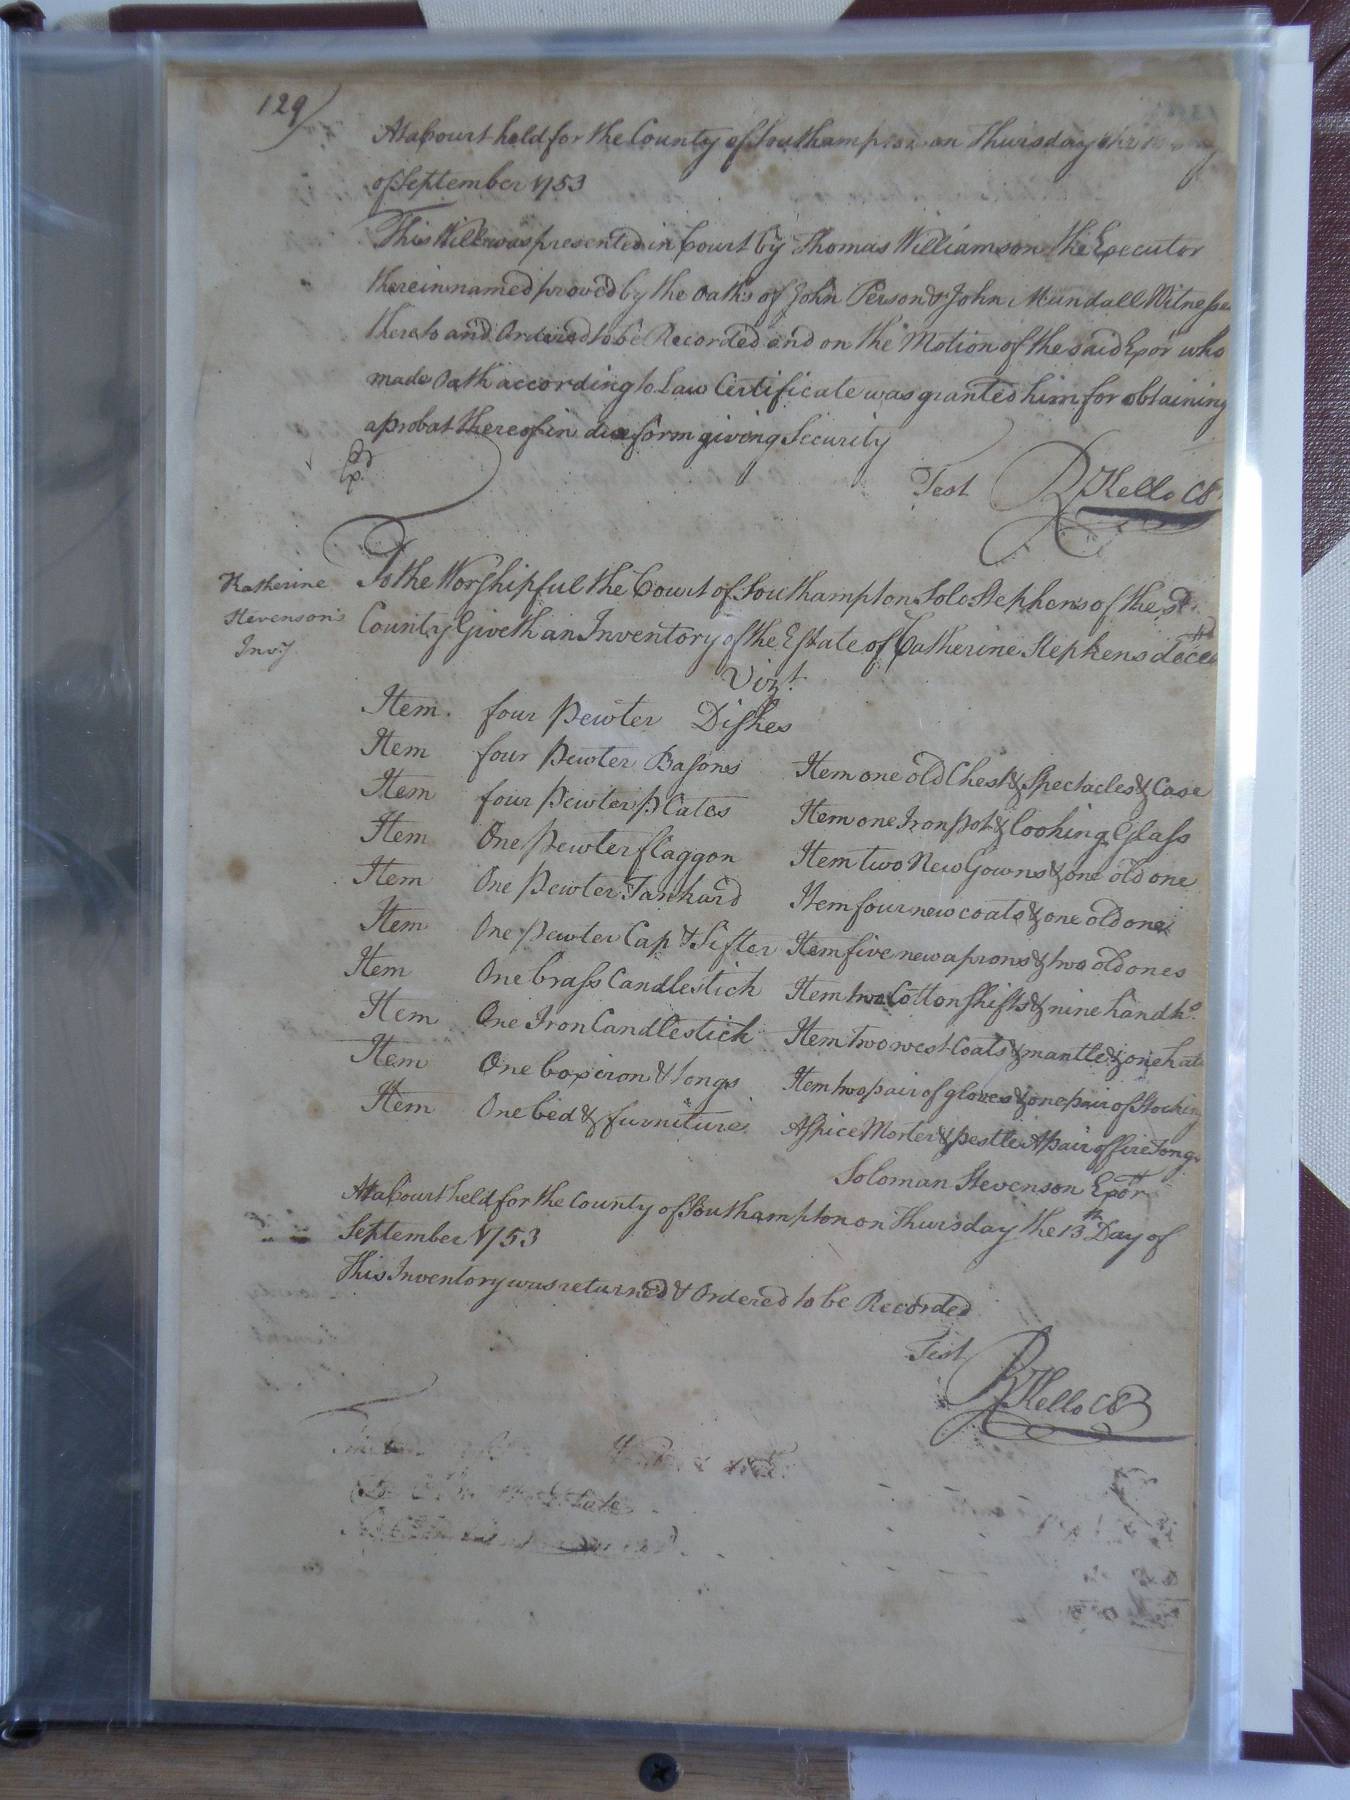 129
At a Court held for the County of Southampton on Thursday the
of September 1753
This Will was presented in Court by Thomas Williamson the Executor
therein named proved by the oaths of John Person & John Mundall Witnesses
thereto and Ordered to be Recorded and on the Motion of the said Exor who
made Oath according to Law Certificate was granted him for obtaining
a probat thereof in due form giving Security
Test R Kello CS
Katherine
Stevenson's
Invy
To the Worshipful the Court of Southampton Solo Stephens of the sd
County Giveth an Inventory of the Estate of Catherine Stephens deced
Vizt.
Item four Pewter Dishes
Item four Pewter Basons
Item four Pewter Plates
Item One Pewter flaggon
Item One Pewter Tankard
Item One Pewter Cap & Sifter
Item One brass Candlestick
Item One Iron Candlestick
Item One box iron & tongs
Item One bed & furniture
Item one old Chest & Spectacles & Case
Item one Iron pot & looking Glass
Item two New Gowns & one old one
Item four new coats & one old one
Item five new aprons & two old ones
Item two Cotton Shifts & nine handks.
Item two west Coats & mantle & one hat
Item two pair of gloves & one pair of Stockings
A Spice Morter & pestle A pair of fire Tongs
Soloman Stevenson Exor
At a Court held for the County of Southampton on Thursday the 13th Day of
September 1753
This Inventory was returned & Ordered to be Recorded
Test
R Kello CS